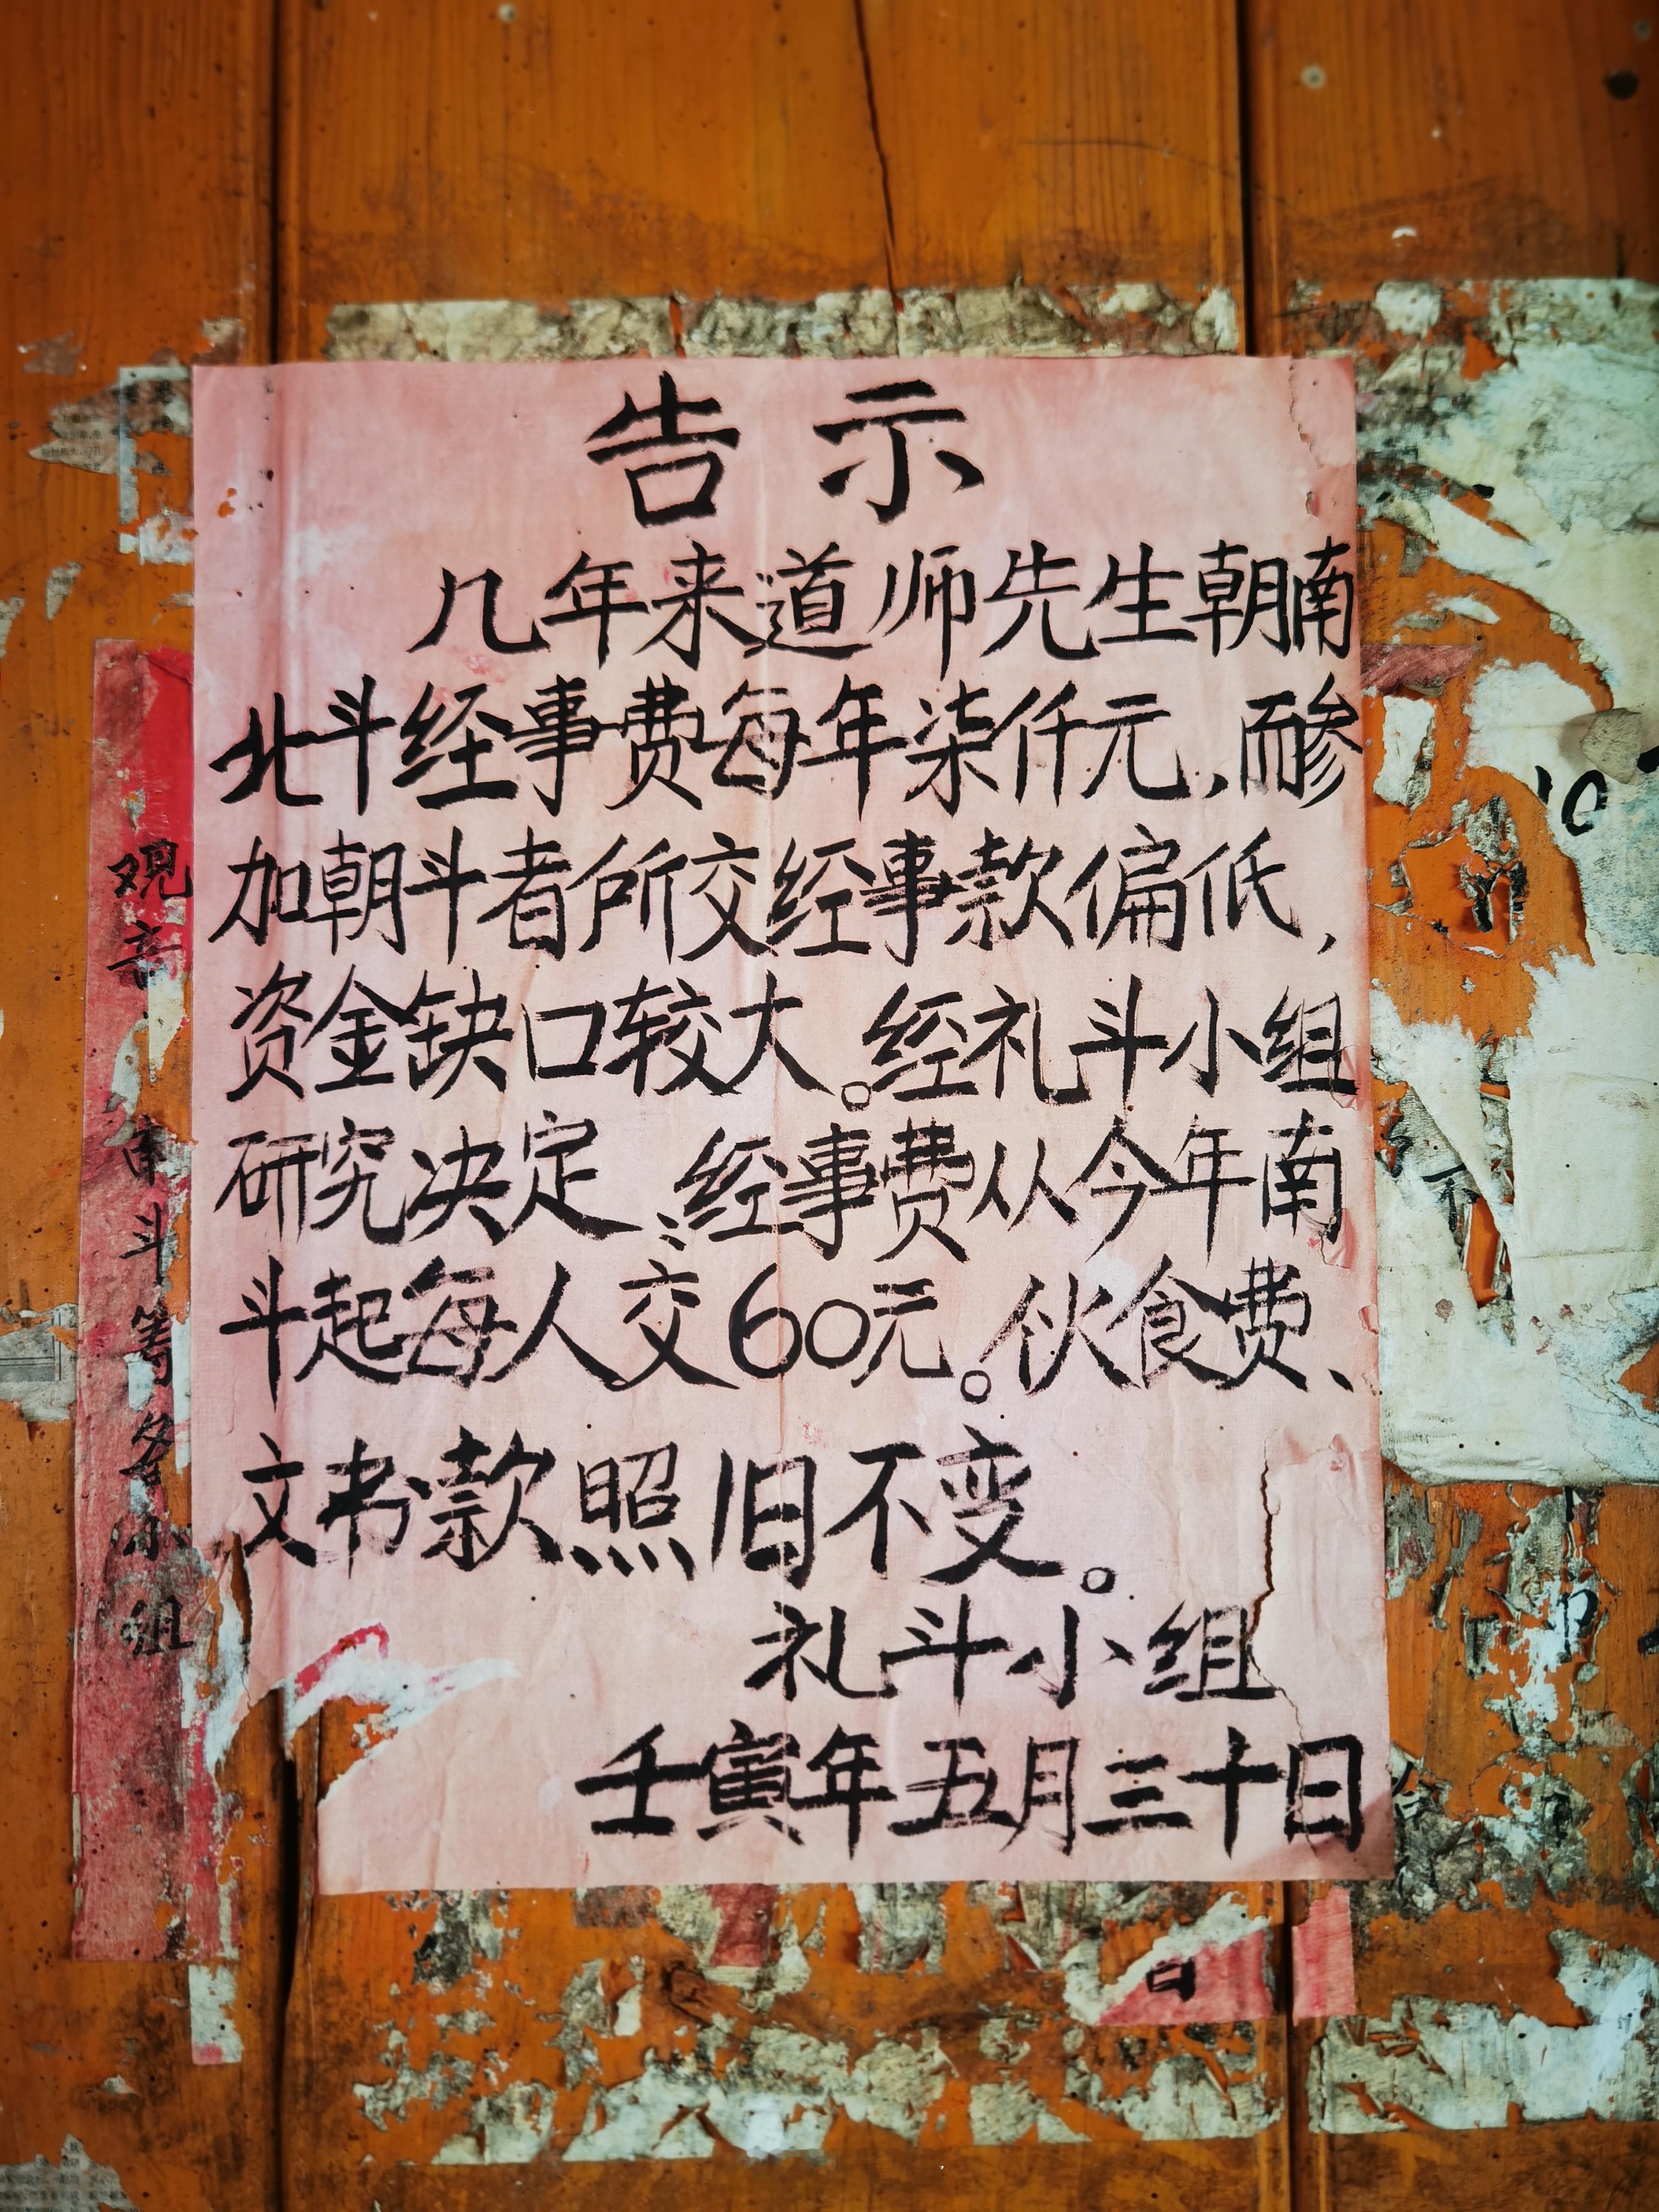 告示
几年来道师先生朝南
北斗经事费每年柒仟元，而参
加朝斗者所交经事款偏低，
资金缺口较大。经礼斗小组
研究决定：经事费从今年南
斗起每人交60元。伙食费、
文书款照旧不变。
礼斗小组
壬寅年五月三十日
观音
斗等各小组